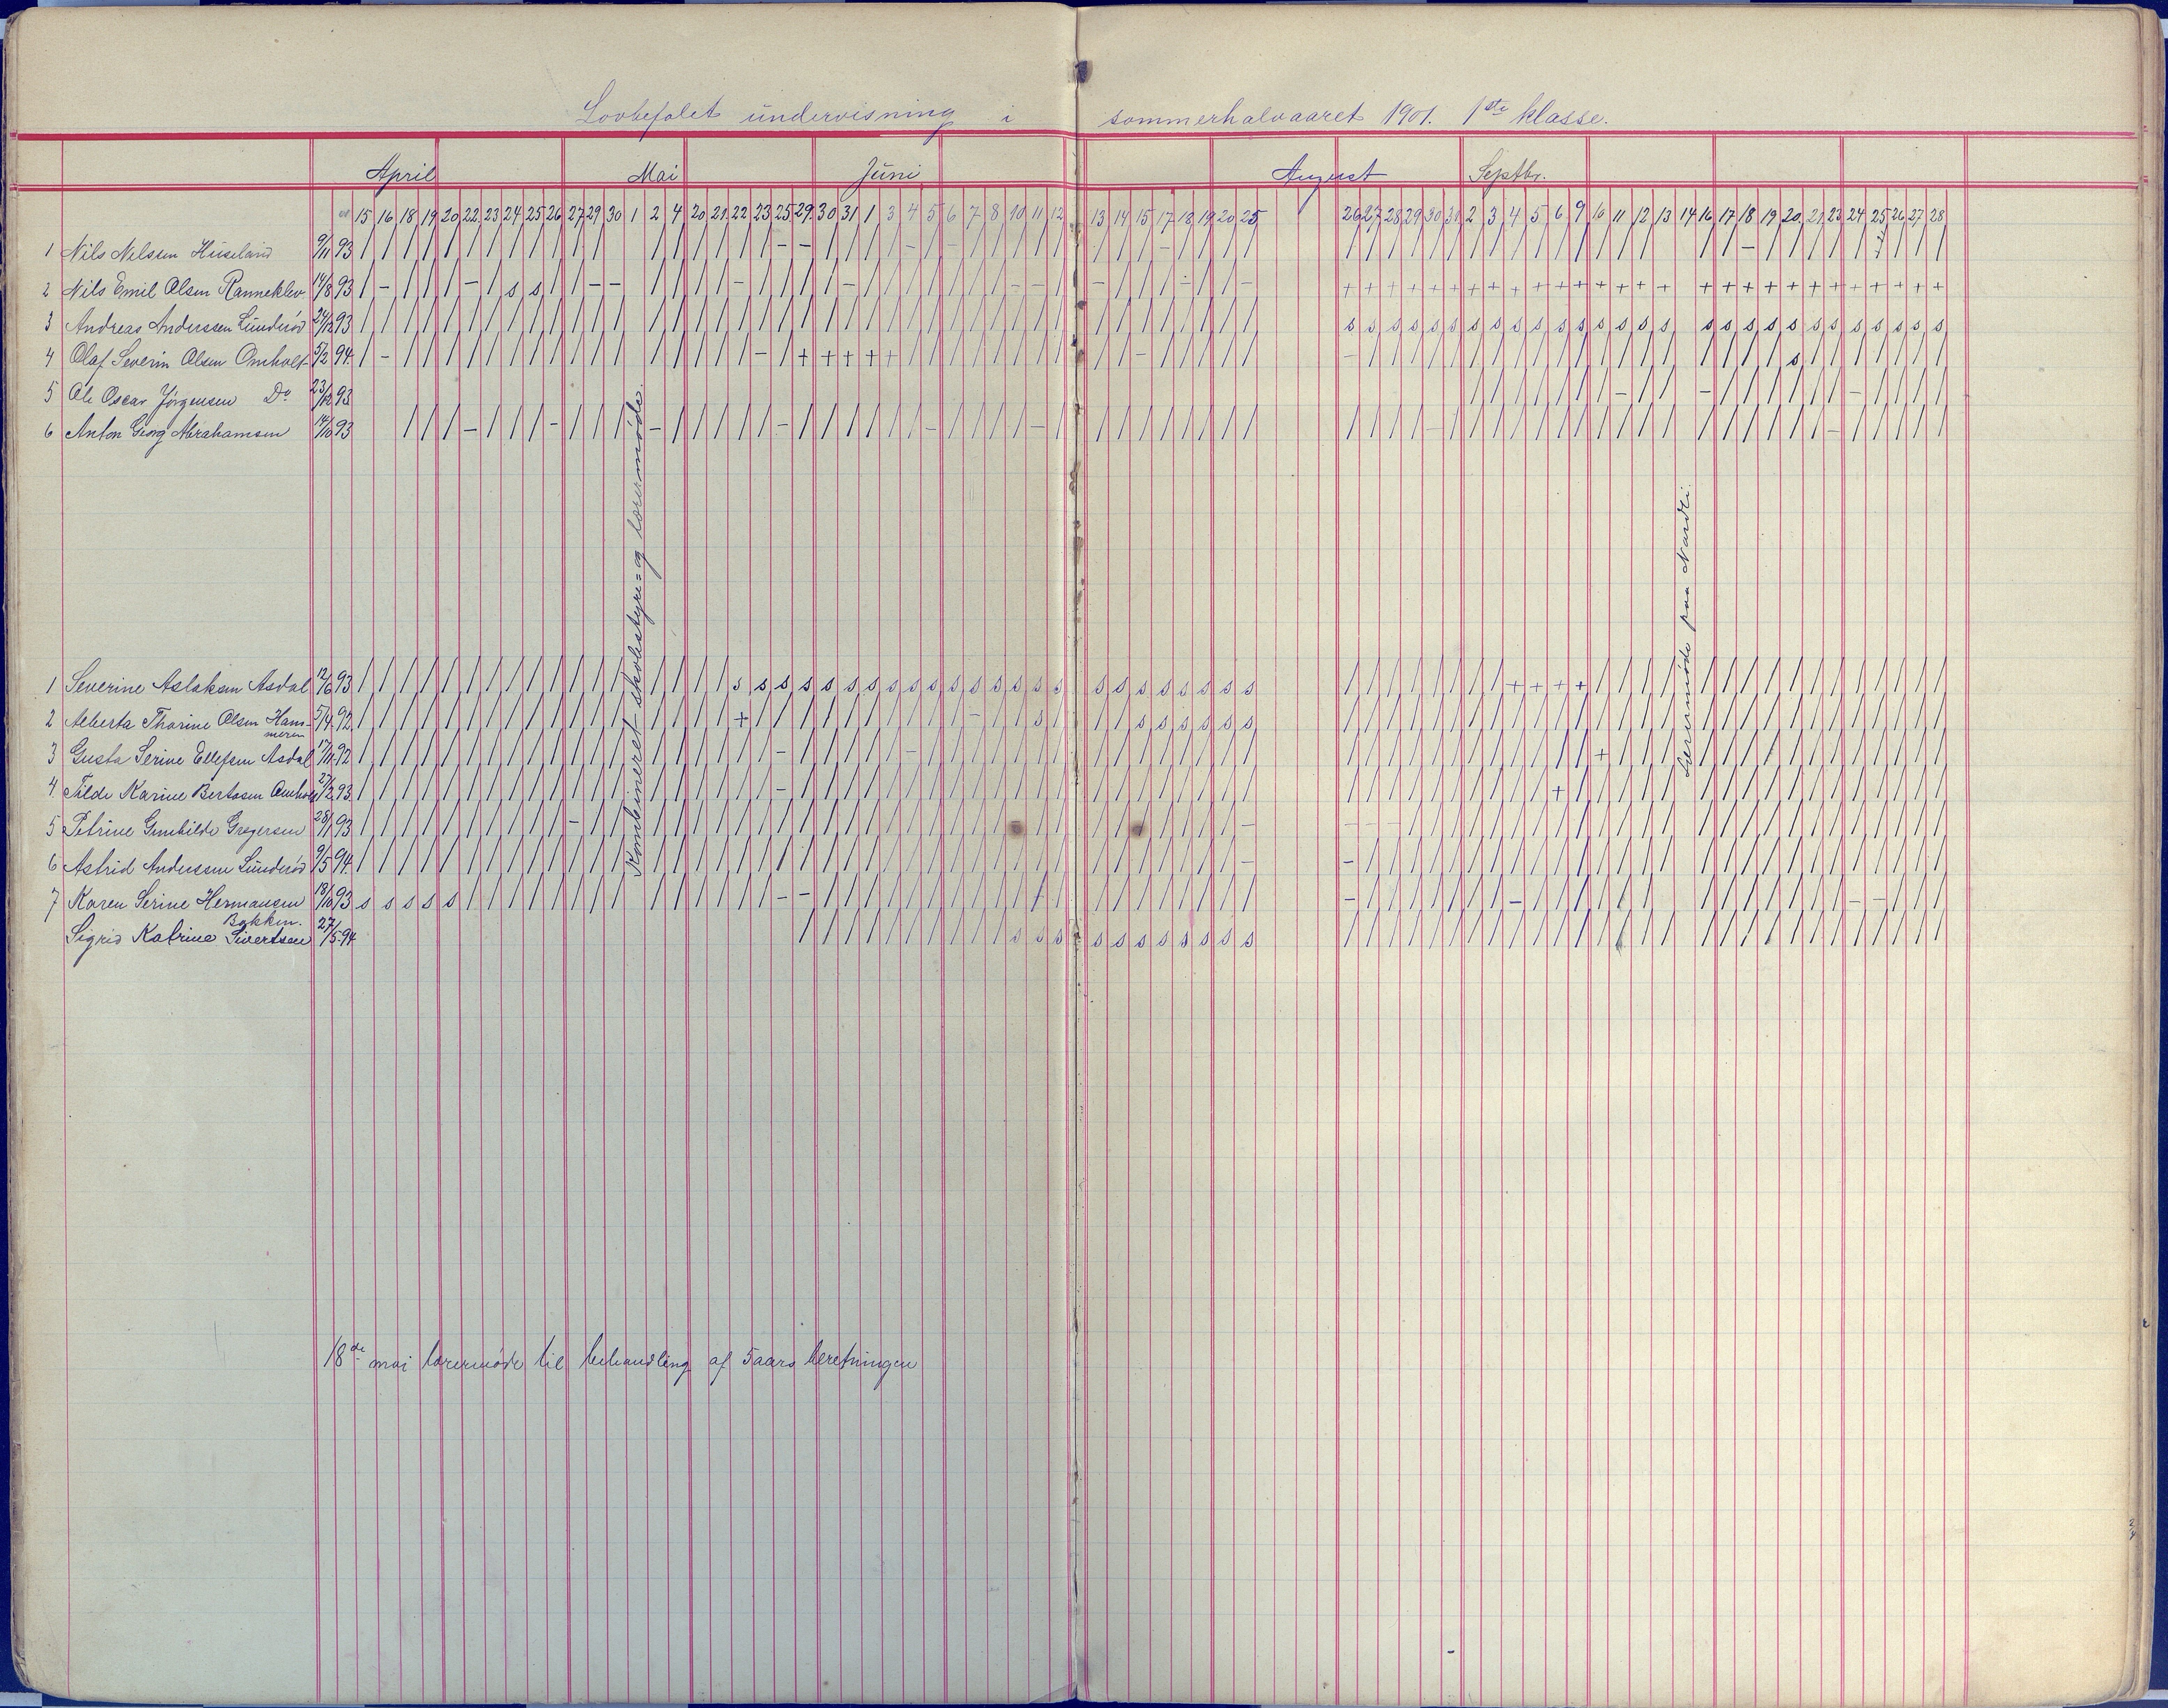 Lovbefalet undervisning i sommerhalvaaret 1901. 1ste klasse.
April Mai Juni August Septbr.
15 16 18 19 20 22 23 24 25 26 27 29 30 1 2 4 20 21 22 23 25 29 30 31 1 3 4 5 6 7 8 10 11 12 13 14 15 17 18 19 20 25 26 27 28 29 30 31 2 3 4 5 6 9 10 11 12 13 14 16 17 18 19 20 21 23 24 25 26 27 28
1 Nils Nelssen Huseland 9/11 93 / / / / / / / / / / / / / / / / / / / - - / / / / - / - / / / - -
2 Nils Emil Olsen Ranneklev 14/8 93
3 Andreas Anderssen Lunderød 24/12 93
4 Olaf Severin Olsen Omholt 5/2 94.
5 Ole Oscar Jørgensen Do 23/12 93
6 Anton Georg Abrahamsen 14/10 93
Kombineret skolestyre= og lærermøde.
Lærermøde paa Nardli.
1 Severine Aslaksen Asdal 12/6 93
2 Alberta Thorine Olsen Ham-
meren 5/4 92.
3 Gusta Serine Ellefsen Asdal 17/11 92
4. Tilda Karine Bertosen Omholt 27/2 93.
5 Petrine Gunhilde Gregersen 28/1 93
6 Astrid Anderssen Lunderød 9/5 94.
7 Karen Serine Hermansen 18/10 93
Bakken.
Sigrid Katrine Sivertsen 27/5 94
18de mai lærermøde til behandling af 5aars beretningen